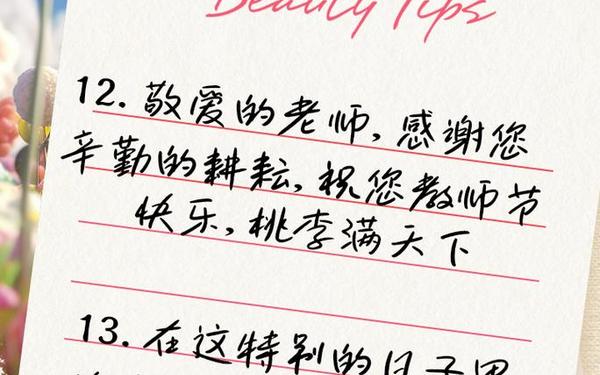 Beauty Tips
12. 敬爱的老师,感谢您
辛勤的耕耘,祝您教师节
快乐,桃李满天下
13. 在这特别的日子里